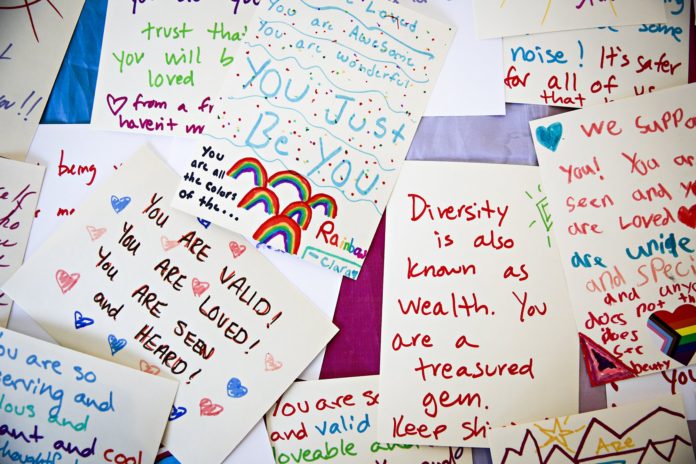 trust that
you will b
loved
from a fr
haven't m
Loved
You are Awesome
You are wonderful
You Just
Be You
You
are all
the colors
of the...
Rainbow
-Clara
being
YOU ARE VALID!
YOU ARE LOVED!
YOU ARE SEEN
and HEARD!
Diversity
is also
known as
wealth. You
are a
treasured
gem.
Keep sh
some
noise! It's safer
for all of us
that
we suppo
you! You are
seen and y
are loved
are unique
and speci
and anyo
does not th
does
see
beauty
You are so
serving and
ious and
ant and cool
thoughtful
You are so
and valid
loveable and
Are